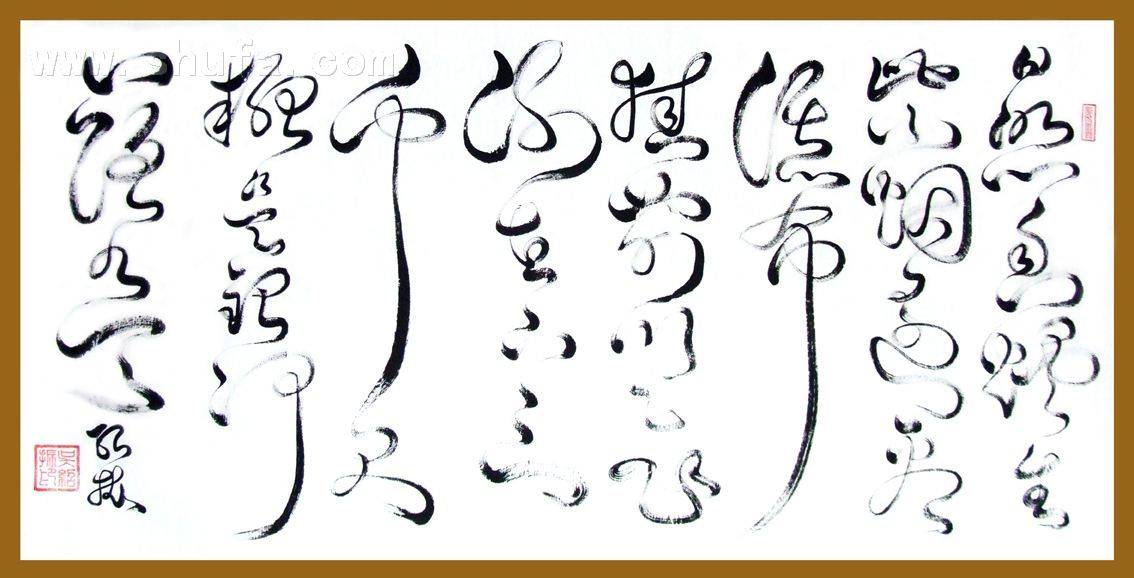 日照香爐生
紫烟遥看
瀑布
挂前川飛
流直下三
千尺
疑是銀河
落九天
www.shufa.com